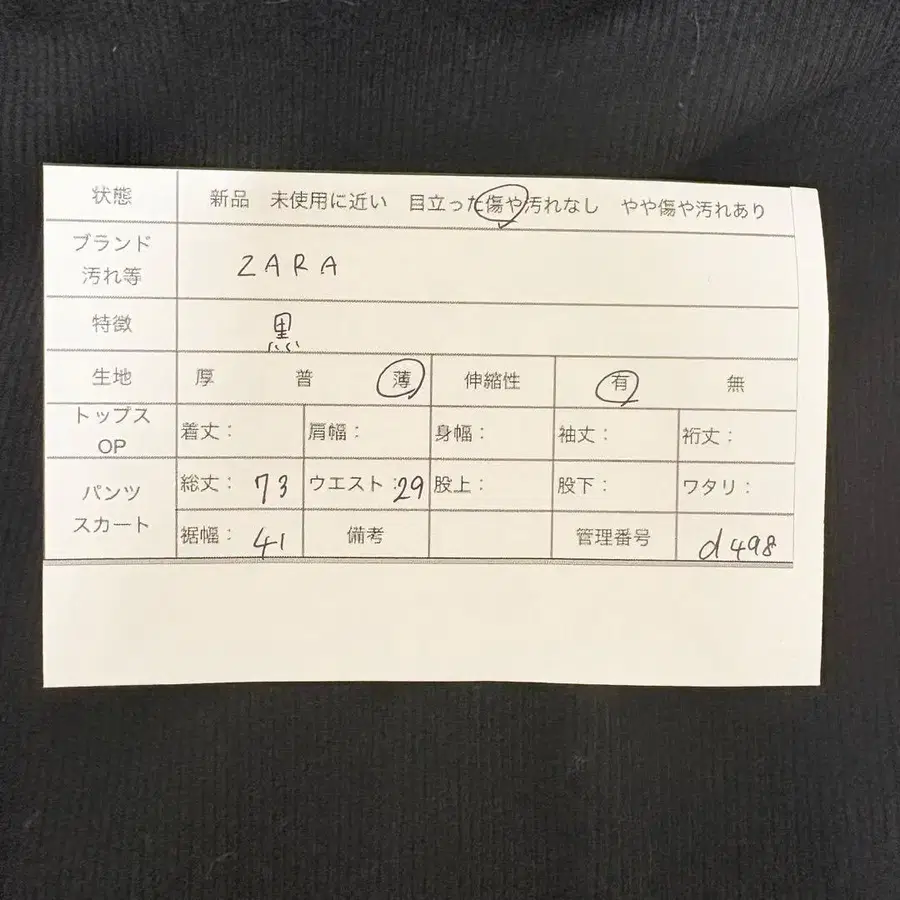 状態 新品 未使用に近い 目立った傷や汚れなし やや傷や汚れあり
ブランド
汚れ等 ZARA
特徴 黒
生地 厚 普 薄 伸縮性 有 無
トップス
OP 着丈： 肩幅： 身幅： 袖丈： 裄丈：
パンツ
スカート 総丈：73 ウエスト：29 股上： 股下： ワタリ：
裾幅：41 備考 管理番号 d498